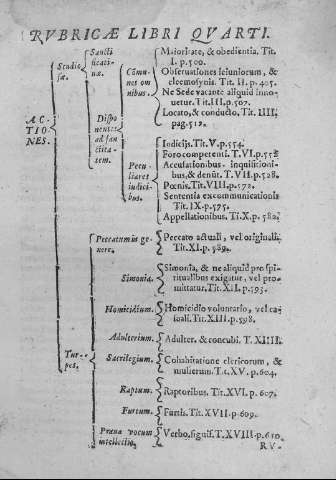 RVBRICÆ LIBRI QVARTI.
ACTIONES.
Studiosæ.
Sanctificatiuæ.
Disponentes ad sanctitatem.
Cõmunes omnibus.
Maioritate, & obedientia. Tit.
I. p.500.
Obseruationes ieiuniorum, &
eleemosynis. Tit. II. p.405.
Ne Sede vacante aliquid innouetur. Tit.III.p.507.
Locato, & conductio. Tit. IIII.
pag.512.
Peculiares iudicibus.
Iudicijs. Tit.V.p.554.
Foro competenti. T.VI.p.558
Accusationibus inquisitionibus,& denũt. T.VII.p.528.
Pœnis. Tit.VIII.p.572.
Sententia excommunicationis
Tit.IX.p.575.
Appellationibus. Ti.X.p.582.
Turpes.
Peccatum in genere.
Peccato actuali, vel originali.
Tit.XI.p.589.
Simonia.
Simonia, & ne aliquid pro spiritualibus exigatur, vel promittatur. Tit.XII.p.593.
Homicidium.
Homicidio voluntario, vel casuali. Tit.XIII.p.598.
Adulterium.
Adulter. & concubi. T. XIIII.
Sacrilegium.
Cohabitatione clericorum, &
mulierum. Tit.XV.p.604.
Raptum.
Raptoribus. Tit.XVI.p.607.
Furtum.
Furtis. Tit.XVII.p.609.
Praua vocum intellectio.
Verbo. signif. T.XVIII.p.610.
RV.